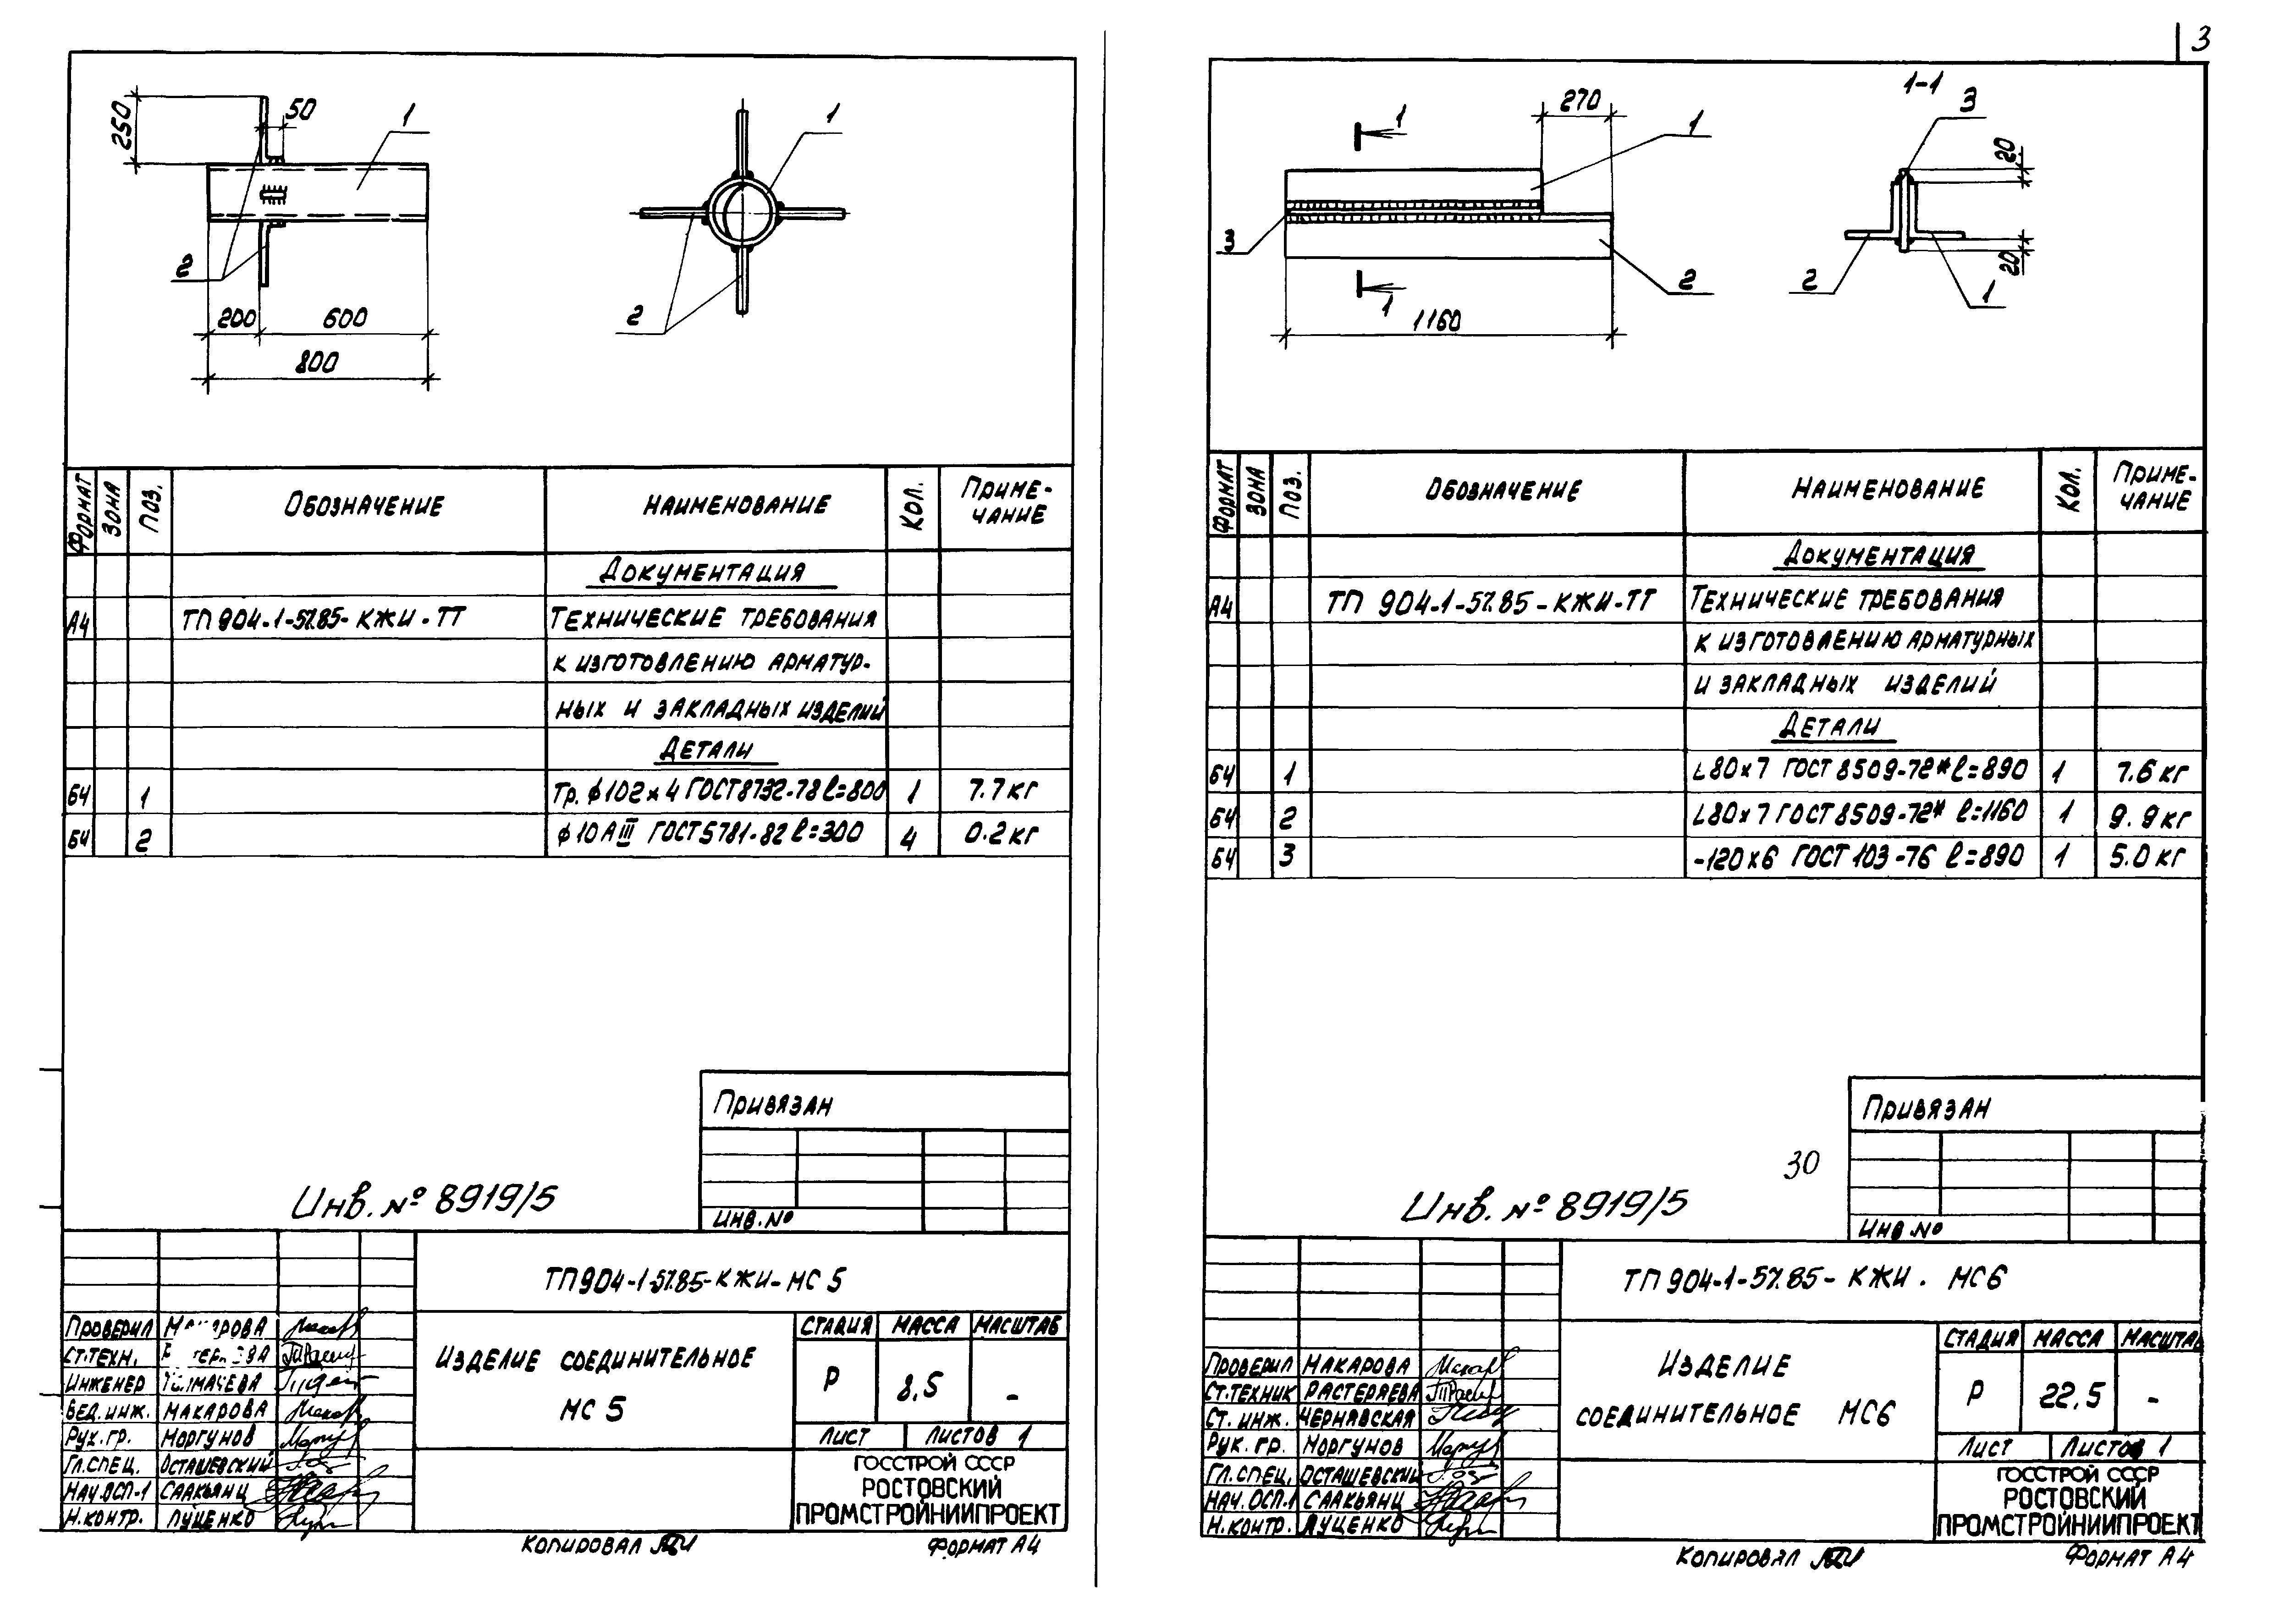 3
250
50
1
2
200
600
800
1
2
ФОРМАТ
ЗОНА
ПОЗ.
ОБОЗНАЧЕНИЕ
НАИМЕНОВАНИЕ
КОЛ.
ПРИМЕ-
ЧАНИЕ
ДОКУМЕНТАЦИЯ
А4 ТП 904-1-57.85-КЖИ-ТТ ТЕХНИЧЕСКИЕ ТРЕБОВАНИЯ
К ИЗГОТОВЛЕНИЮ АРМАТУР-
НЫХ И ЗАКЛАДНЫХ ИЗДЕЛИЙ
ДЕТАЛИ
БЧ 1 Тр. ϕ102×4 ГОСТ 8732-78 ℓ=800 1 7.7 кг
БЧ 2 ϕ10АIII ГОСТ 5781-82 ℓ=300 4 0.2 кг
ПРИВЯЗАН
ИНВ. №
Инв. № 8919/5
ТП 904-1-57.85-КЖИ-МС 5
ПРОВЕРИЛ
СТ.ТЕХН.
ИНЖЕНЕР
ВЕД.ИНЖ. МАКАРОВА
РУК.ГР. МОРГУНОВ
ГЛ.СПЕЦ. ОСТАШЕВСКИЙ
НАЧ.ОСП-1 СААКЬЯНЦ
Н.КОНТР. ЛУЦЕНКО
ИЗДЕЛИЕ СОЕДИНИТЕЛЬНОЕ
МС 5
СТАДИЯ МАССА МАСШТАБ
Р 8,5 -
ЛИСТ ЛИСТОВ 1
ГОССТРОЙ СССР
РОСТОВСКИЙ
ПРОМСТРОЙНИИПРОЕКТ
КОПИРОВАЛ
ФОРМАТ А4
1
270
1
3
2
1
1160
1-1
3
20
20
2
1
ФОРМАТ
ЗОНА
ПОЗ.
ОБОЗНАЧЕНИЕ
НАИМЕНОВАНИЕ
КОЛ.
ПРИМЕ-
ЧАНИЕ
ДОКУМЕНТАЦИЯ
А4 ТП 904-1-57.85-КЖИ-ТТ ТЕХНИЧЕСКИЕ ТРЕБОВАНИЯ
К ИЗГОТОВЛЕНИЮ АРМАТУРНЫХ
И ЗАКЛАДНЫХ ИЗДЕЛИЙ
ДЕТАЛИ
БЧ 1 L80×7 ГОСТ 8509-72* ℓ=890 1 7.6 кг
БЧ 2 L80×7 ГОСТ 8509-72* ℓ=1160 1 9.9 кг
БЧ 3 -120×6 ГОСТ 103-76 ℓ=890 1 5.0 кг
ПРИВЯЗАН
ИНВ №
30
Инв. № 8919/5
ТП 904-1-57.85-КЖИ. МС6
ПРОВЕРИЛ МАКАРОВА
СТ.ТЕХНИК РАСТЕРЯЕВА
СТ. ИНЖ. ЧЕРНЯВСКАЯ
РУК. ГР. МОРГУНОВ
ГЛ.СПЕЦ. ОСТАШЕВСКИЙ
НАЧ.ОСП-1 СААКЬЯНЦ
Н.КОНТР. ЛУЦЕНКО
ИЗДЕЛИЕ
СОЕДИНИТЕЛЬНОЕ МС6
СТАДИЯ МАССА МАСШТАБ
Р 22,5 -
ЛИСТ ЛИСТОВ 1
ГОССТРОЙ СССР
РОСТОВСКИЙ
ПРОМСТРОЙНИИПРОЕКТ
КОПИРОВАЛ
ФОРМАТ А4